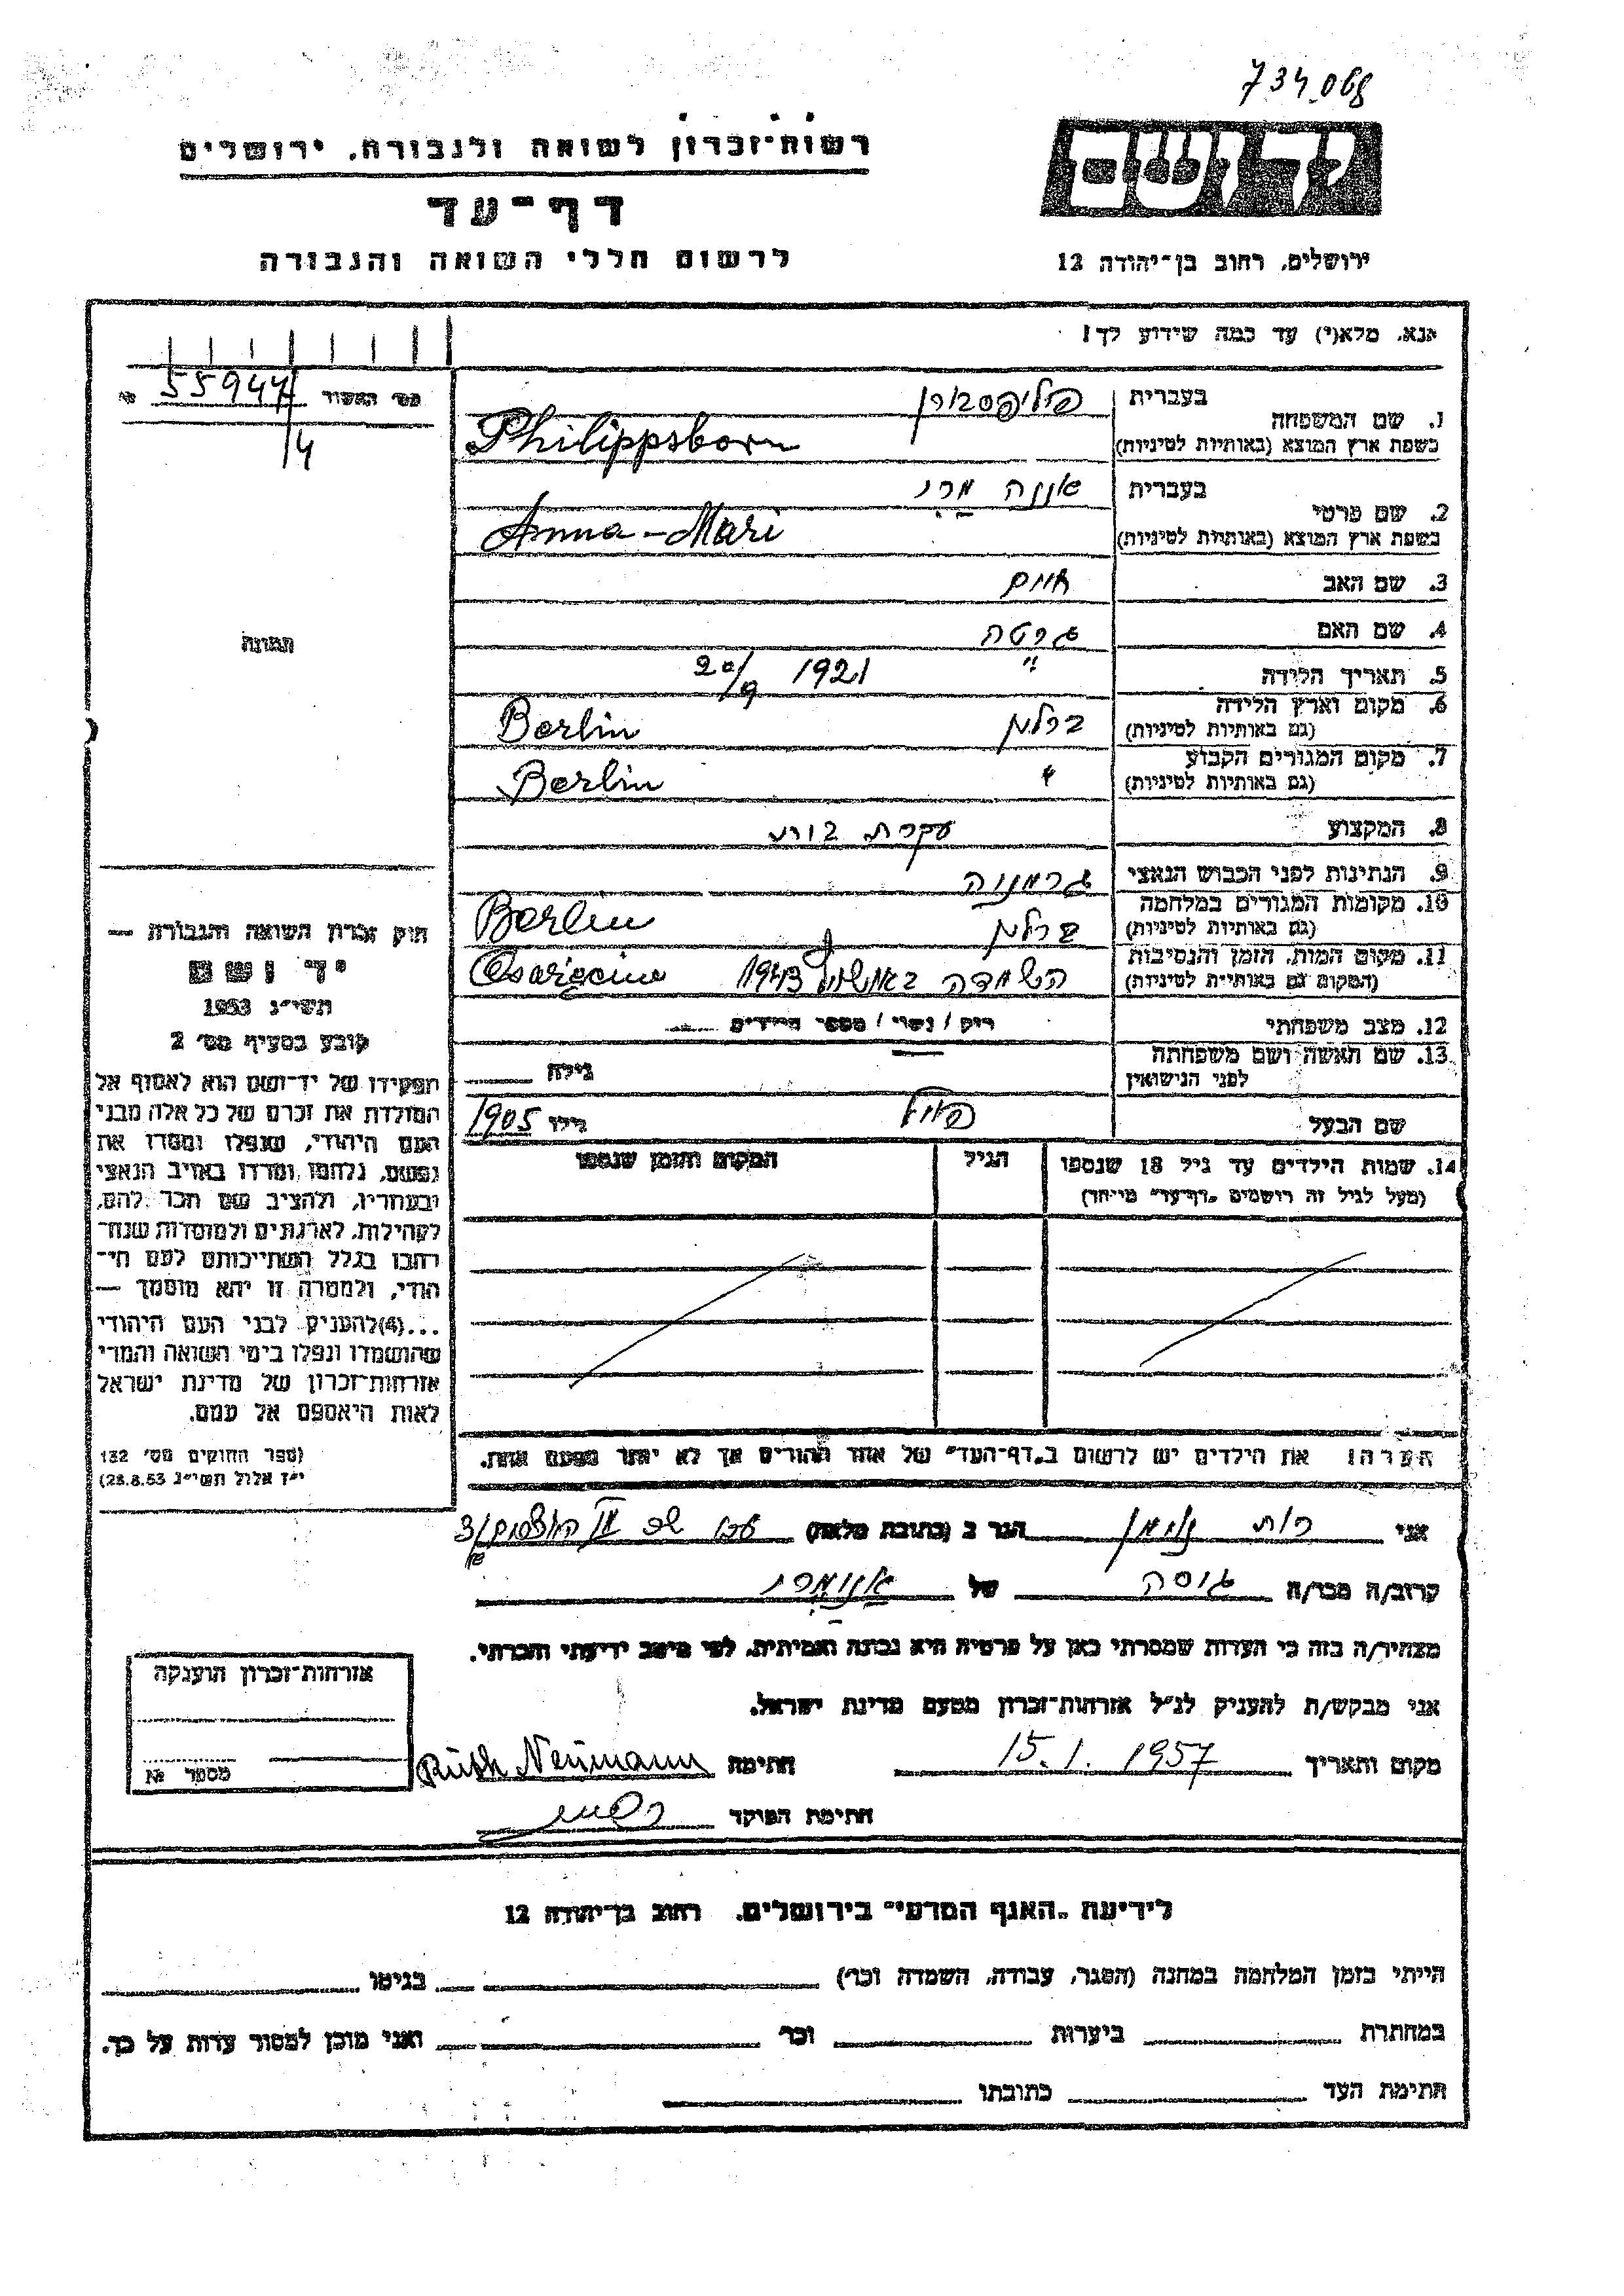 734.068
רשות־זכרון לשואה ולגבורה. ירושלים
דף־עד
לרשום חללי השואה והגבורה
יד ושם
ירושלים, רחוב בן־יהודה 12
אנא, מלא(י) עד כמה שידוע לך!
מס׳ האשור 55944 №
/4
תמונה
חוק זכרון השואה והגבורה —
יד ושם
תשי״ג 1953
קובע בסעיף מס׳ 2
תפקידו של יד־ושם הוא לאסוף אל
המולדת את זכרם של כל אלה מבני
העם היהודי, שנפלו ומסרו את
נפשם, נלחמו ומרדו באויב הנאצי
ובעוזריו, ולהציב שם וזכר להם,
לקהילות, לארגונים ולמוסדות שנח־
רבו בגלל השתייכותם לעם הי־
הודי, ולמטרה זו יהא מוסמך —
...(4) להעניק לבני העם היהודי
שהושמדו ונפלו בימי השואה והמרי
אזרחות־זכרון של מדינת ישראל
לאות היאספם אל עמם.
(ספר החוקים מס׳ 132
י״ז אלול תשי״ג 28.8.53)
1. שם המשפחה בעברית פיליפסבורן
כשפת ארץ המוצא (באותיות לטיניות) Philippsborn
2. שם פרטי בעברית אננה מרי
בשפת ארץ המוצא (באותיות לטיניות) Anna-Mari
3. שם האב חיים
4. שם האם גרטה
5. תאריך הלידה " 20/9 1921
6. מקום וארץ הלידה (גם באותיות לטיניות) ברלין Berlin
7. מקום המגורים הקבוע (גם באותיות לטיניות) " Berlin
8. המקצוע עקרת בית
9. הנתינות לפני הכבוש הנאצי גרמניה
10. מקומות המגורים במלחמה (גם באותיות לטיניות) ברלין Berlin
11. מקום המות, הזמן והנסיבות (המקום גם באותיות לטיניות) השמדה 1943
12. מצב משפחתי רוק / נשוי / מספר הילדים
13. שם האשה ושם משפחתה לפני הנישואין גילה
שם הבעל גילו 1905
14. שמות הילדים עד גיל 18 שנספו
(מעל לגיל זה רושמים „דף־עד״ מיוחד)
הגיל
המקום והזמן שנספו
הערה! את הילדים יש לרשום ב„דף־העד״ של אחד ההורים אך לא יותר מפעם אחת.
אני רות נוימן הגר ב (כתובת מלאה)
קרוב/ה מכר/ה גיסה של
מצהיר/ה בזה כי העדות שמסרתי כאן על פרטיה היא נכונה ואמיתית, לפי מיטב ידיעתי והכרתי.
אני מבקש/ת להעניק לנ״ל אזרחות־זכרון מטעם מדינת ישראל.
מקום ותאריך 15.1.1957 חתימה Ruth Neumann
חתימת הפוקד
אזרחות־זכרון הוענקה
מספר №
לידיעת „האגף המדעי״ בירושלים. רחוב בן־יהודה 12
הייתי בזמן המלחמה במחנה (הסגר, עבודה, השמדה וכר) בגיטו
במחתרת ביערות וכר ואני מוכן למסור עדות על כך.
חתימת העד כתובתו